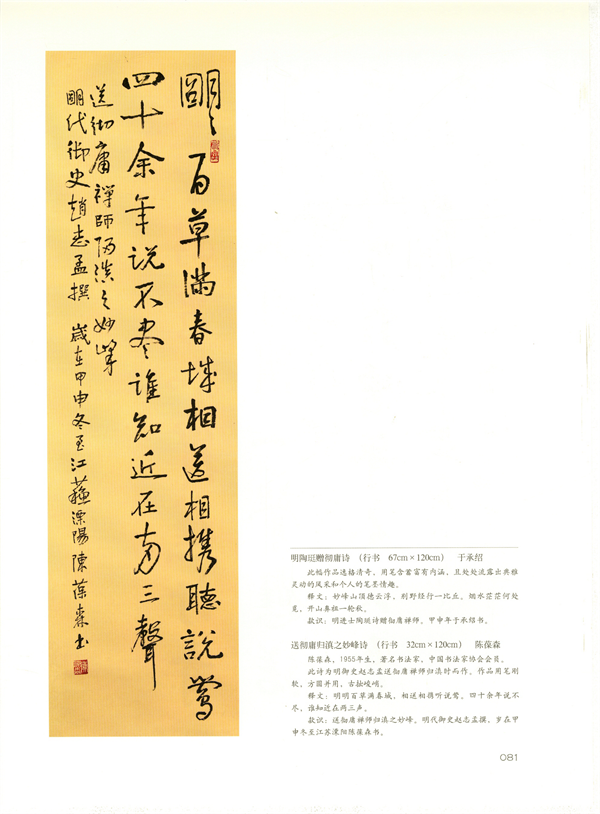 朙〻百草滿春城相送相携聽說鶯
四十余年说不尽谁知近在两三聲
送彻庸禪師歸滇之妙峯
朙代御史趙志孟撰 歲在甲申冬至江蘇溧陽陳葆森书
明陶珽赠彻庸诗 （行书 67cm×120cm） 于承绍
此幅作品选格清奇，用笔含蓄富有内涵，且处处流露出典雅
灵动的风采和个人的笔墨情趣。
释文：妙峰山顶德云浮，别野经行一比丘。烟水茫茫何处
觅，开山鼻祖一轮秋。
款识：明进士陶珽诗赠彻庸禅师，甲申年于承绍书。
送彻庸归滇之妙峰诗 （行书 32cm×120cm） 陈葆森
陈葆森，1955年生，著名书法家，中国书法家协会会员。
此诗为明御史赵志孟送彻庸禅师归滇时而作。作品用笔刚
软，方圆并用，古拙峻峭。
释文：明明百草满春城，相送相携听说莺。四十余年说不
尽，谁知近在两三声。
款识：送彻庸禅师归滇之妙峰。明代御史赵志孟撰，岁在甲
申冬至江苏溧阳陈葆森书。
081